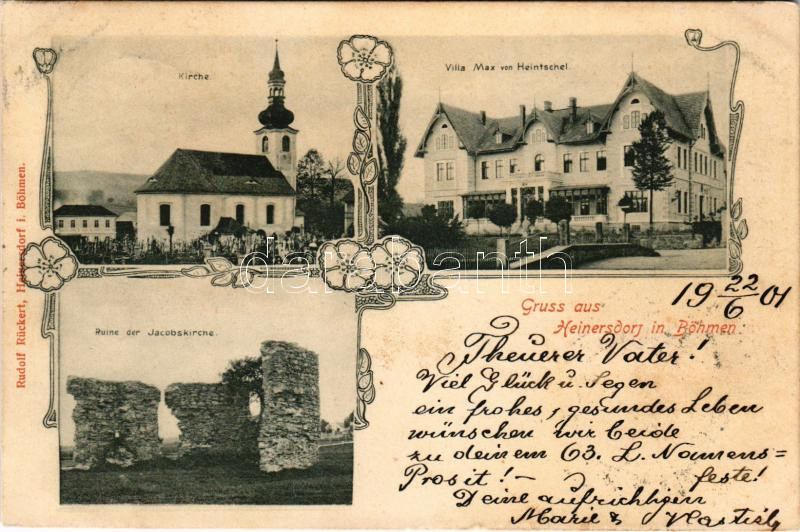 Kirche.
Villa Max von Heintschel.
Rudolf Rückert, Heinersdorf i. Böhmen.
Ruine der Jacobskirche.
darabanth
Gruss aus
Heinersdorf in Böhmen.
19 22/6 01
Theuerer Vater!
Viel Glück u. Segen
ein frohes, gesundes Leben
wünschen wir beide
zu deinem 63. L. Namens=
Prosit! - feste!
Deine aufrichtigen
Marie &